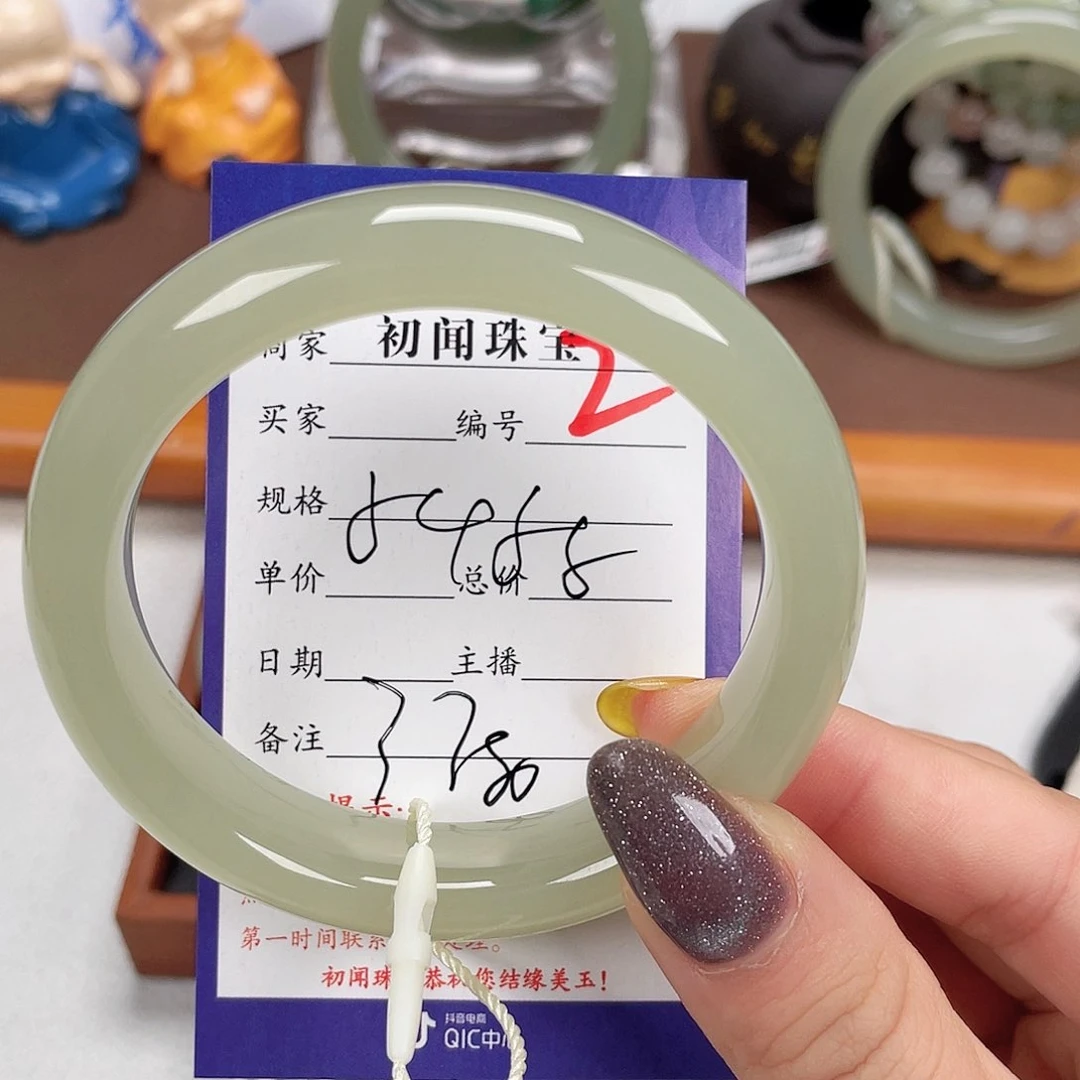 商家 初闻珠宝
2
买家 编号
规格
单价 总价
日期 主播
备注
提示:
第一时间联系 处理。
初闻珠 恭祝您结缘美玉！
抖音电商
QIC中心